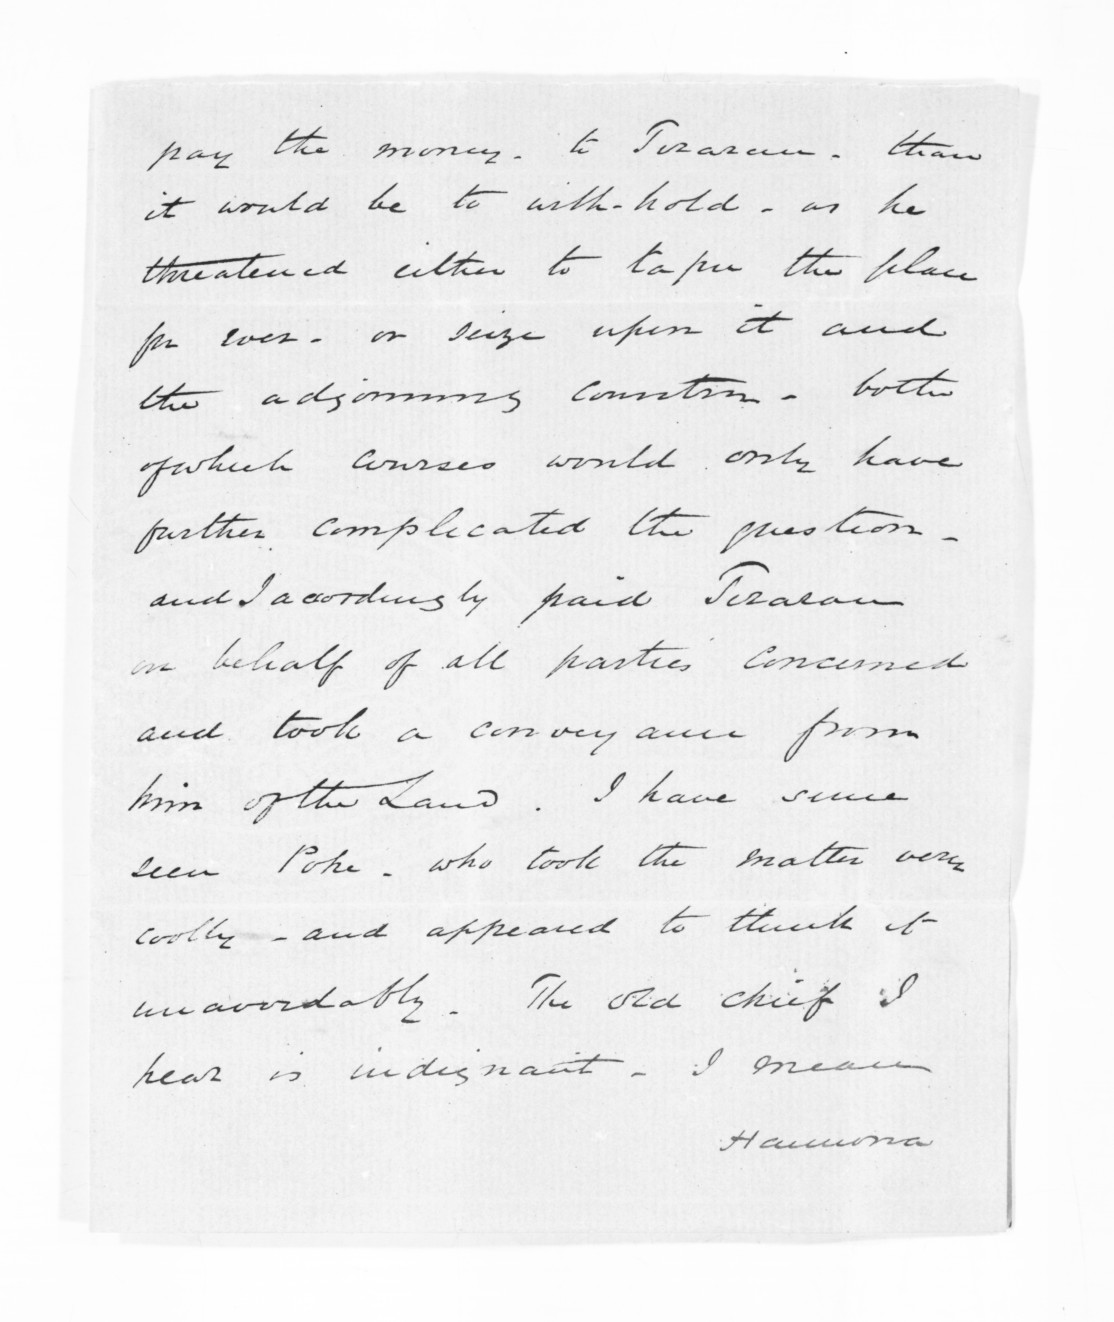 pay the money - to Tirarau - than
it would be to with-hold - as he
threatened either to tapu the place
for ever - or seize upon it and
the adjoining countries - both
of which courses would only have
further complicated the question -
and I accordingly paid Tirarau
on behalf of all parties concerned
and took a conveyance from
him of the Land. I have since
seen Pohe - who took the matter very
coolly - and appeared to think it
unavoidably - The old chief I
hear is indignant - I mean